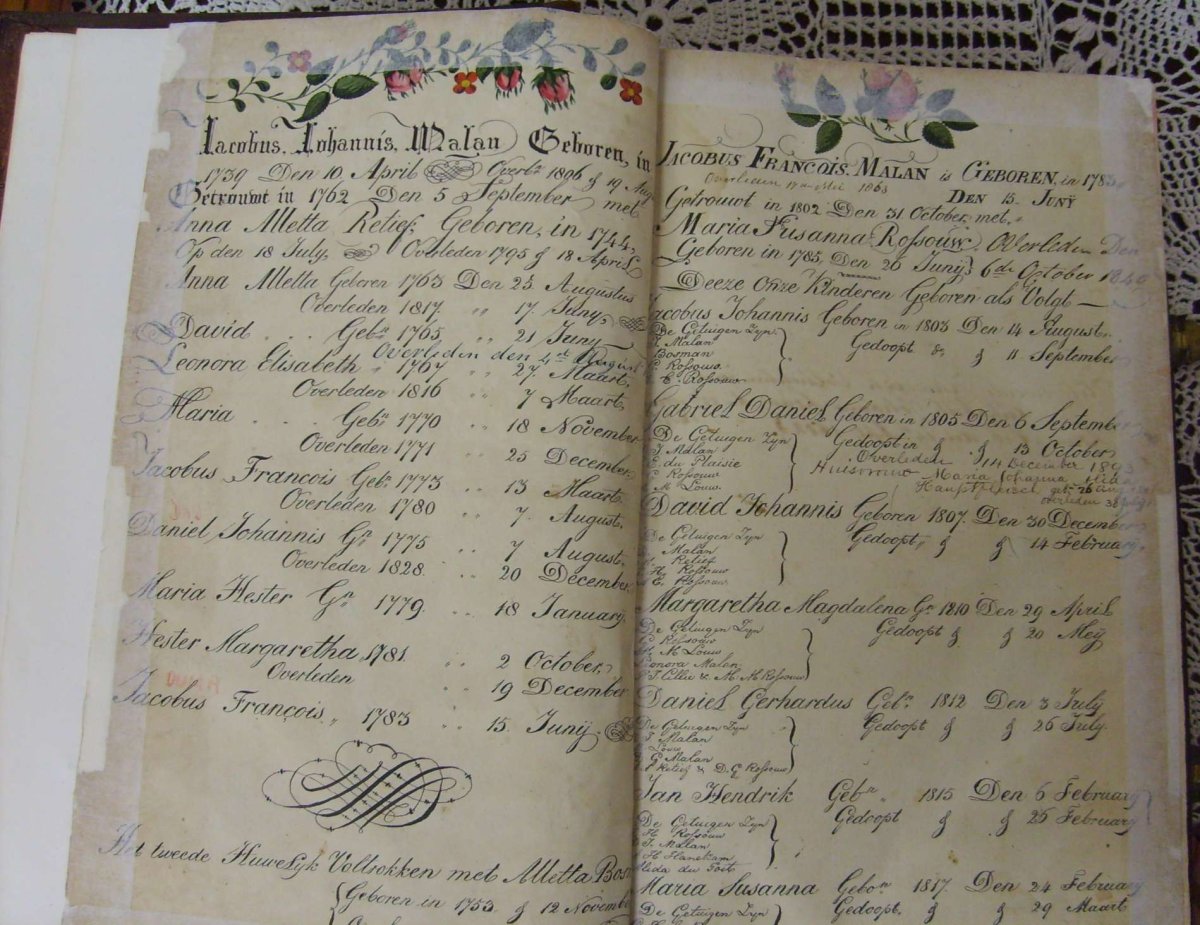 Iacobus. Iohannis. Malan Geboren, in
1739 Den 10. April Overlz. 1806 & 19 Aug
Getrouwt in 1762 Den 5 September met
Anna Alletta Retief. Geboren, in 1744,
Op den 18 July, Overleden 1795 & 18 April
Anna Alletta Geboren 1763 Den 23 Augustus
Overleden 1817. " 17. Juny,
David . . Gebn. 1765. " 21 Juny
Overleden den 4st August
Leonora Elisabeth " 1767 " 27 Maart,
Overleden 1816 " 7 Maart,
Maria . . Gebn. 1770 " 18 November
Overleden 1771 " 25 December,
Jacobus Francois Gebn. 1773 " 13 Maart.
Overleden 1780 " 7. August.
Daniel Johannis Gn. 1775 " 7 August.
Overleden 1828. " 20 December.
Maria Hester Gn. 1779. " 18 January.
Hester Margaretha 1781. " 2 October,
Overleden " 19 December
Jacobus François " 1783 " 15 Junÿ.
Het tweede Huwelyk Voltrokken met Alletta Bos
Geboren in 1753. & 12 Novembe
IACOBUS FRANCOIS. MALAN is GEBOREN, in 1783
Overleden 17 Mei 1863
DEN 15. JUNŸ
Getrouwt in 1802. Den 31 October, met,
Maria Susanna Rossouw. Overleden Den
Geboren in 1785, Den 26 Junÿ 6de October 1840
Deeze Onze Kinderen Geboren als Volgt
acobus Johannis Geboren in 1803 Den 14 August.
De Getuigen Zyn
Malan
Gedoopt & & 11 September
Bosman
Rossouw.
E. Rossouw
Gabriel Daniel Geboren in 1805 Den 6 September
De Getuigen Zyn
Gedoopt in & & 13 October
J Malan
Overleden 14 December 1893
du Plaisie
Huisvrouw Maria Johanna
Rossouw
M Louw.
David Johannis Geboren 1807. Den 30 December
De Getuigen Zyn
Gedoopt, & & 14 February.
Malan
Retief
H. Rossouw
E. Rossouw
Margaretha Magdalena Gn. 1810 Den 29 April
De Getuigen Zyn
Gedoopt & & 20 Meÿ
Rossouw
M Louw
eonora Malan
J. Cillie & M. M Rossouw
Daniel Gerhardus Gebn. 1812 Den 3 July
De Getuigen Zyn
Gedoopt & & 26 July
J Malan
Louw
G Malan
Retief & D. G Rossouw
Jan Hendrik Gebn. 1815 Den 6 February
De Getuigen Zyn
Gedoopt & & 25 February
H Rossouw
J. Malan
H Hanekam
leda du Toit
Maria Susanna Gebon. 1817. Den 24 Februa
De Getuigen Zyn
Gedoopt. & & 29 Maart